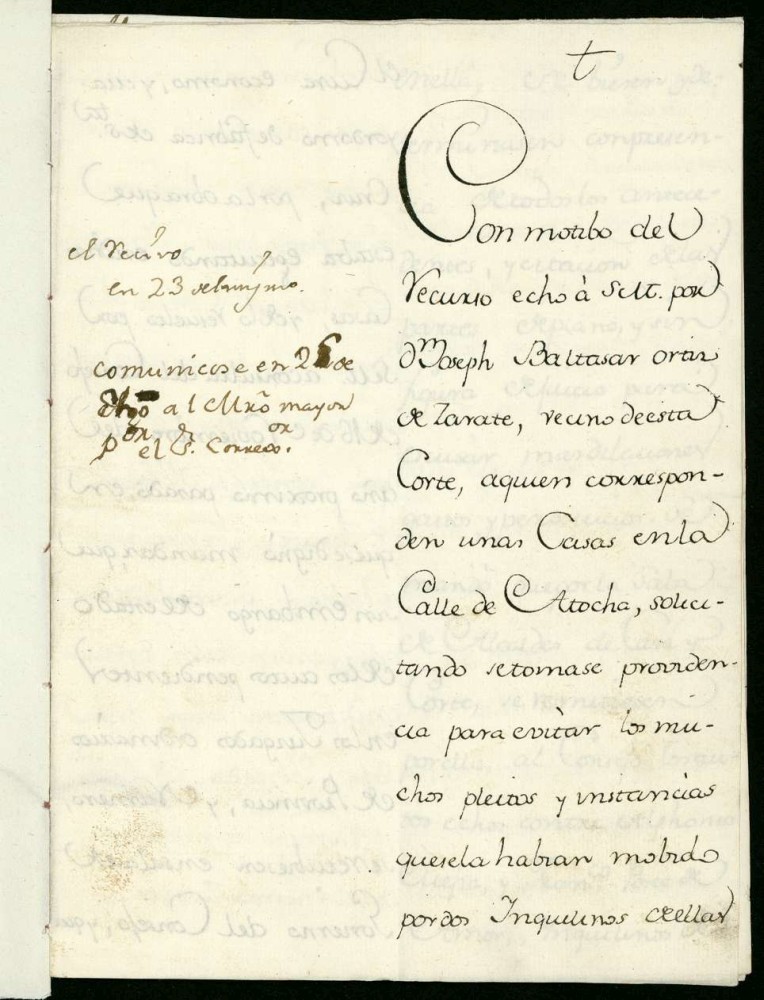 t
Con motibo del
recurso echo à S. Mt. por
Dn Joseph Baltasar ortiz
de Zarate, vecino de esta
Corte, a quien correspon-
den unas Casas en la
Calle de Atocha, solici-
tando se tomase providen-
cia para evitar los mu-
chos pleitos y instancias
que se la habian mobido
por dos Inquilinos de ellas
el recivo
en 23
comunicose en 26 de
al Mro mayor
por el Sr. Correxor.